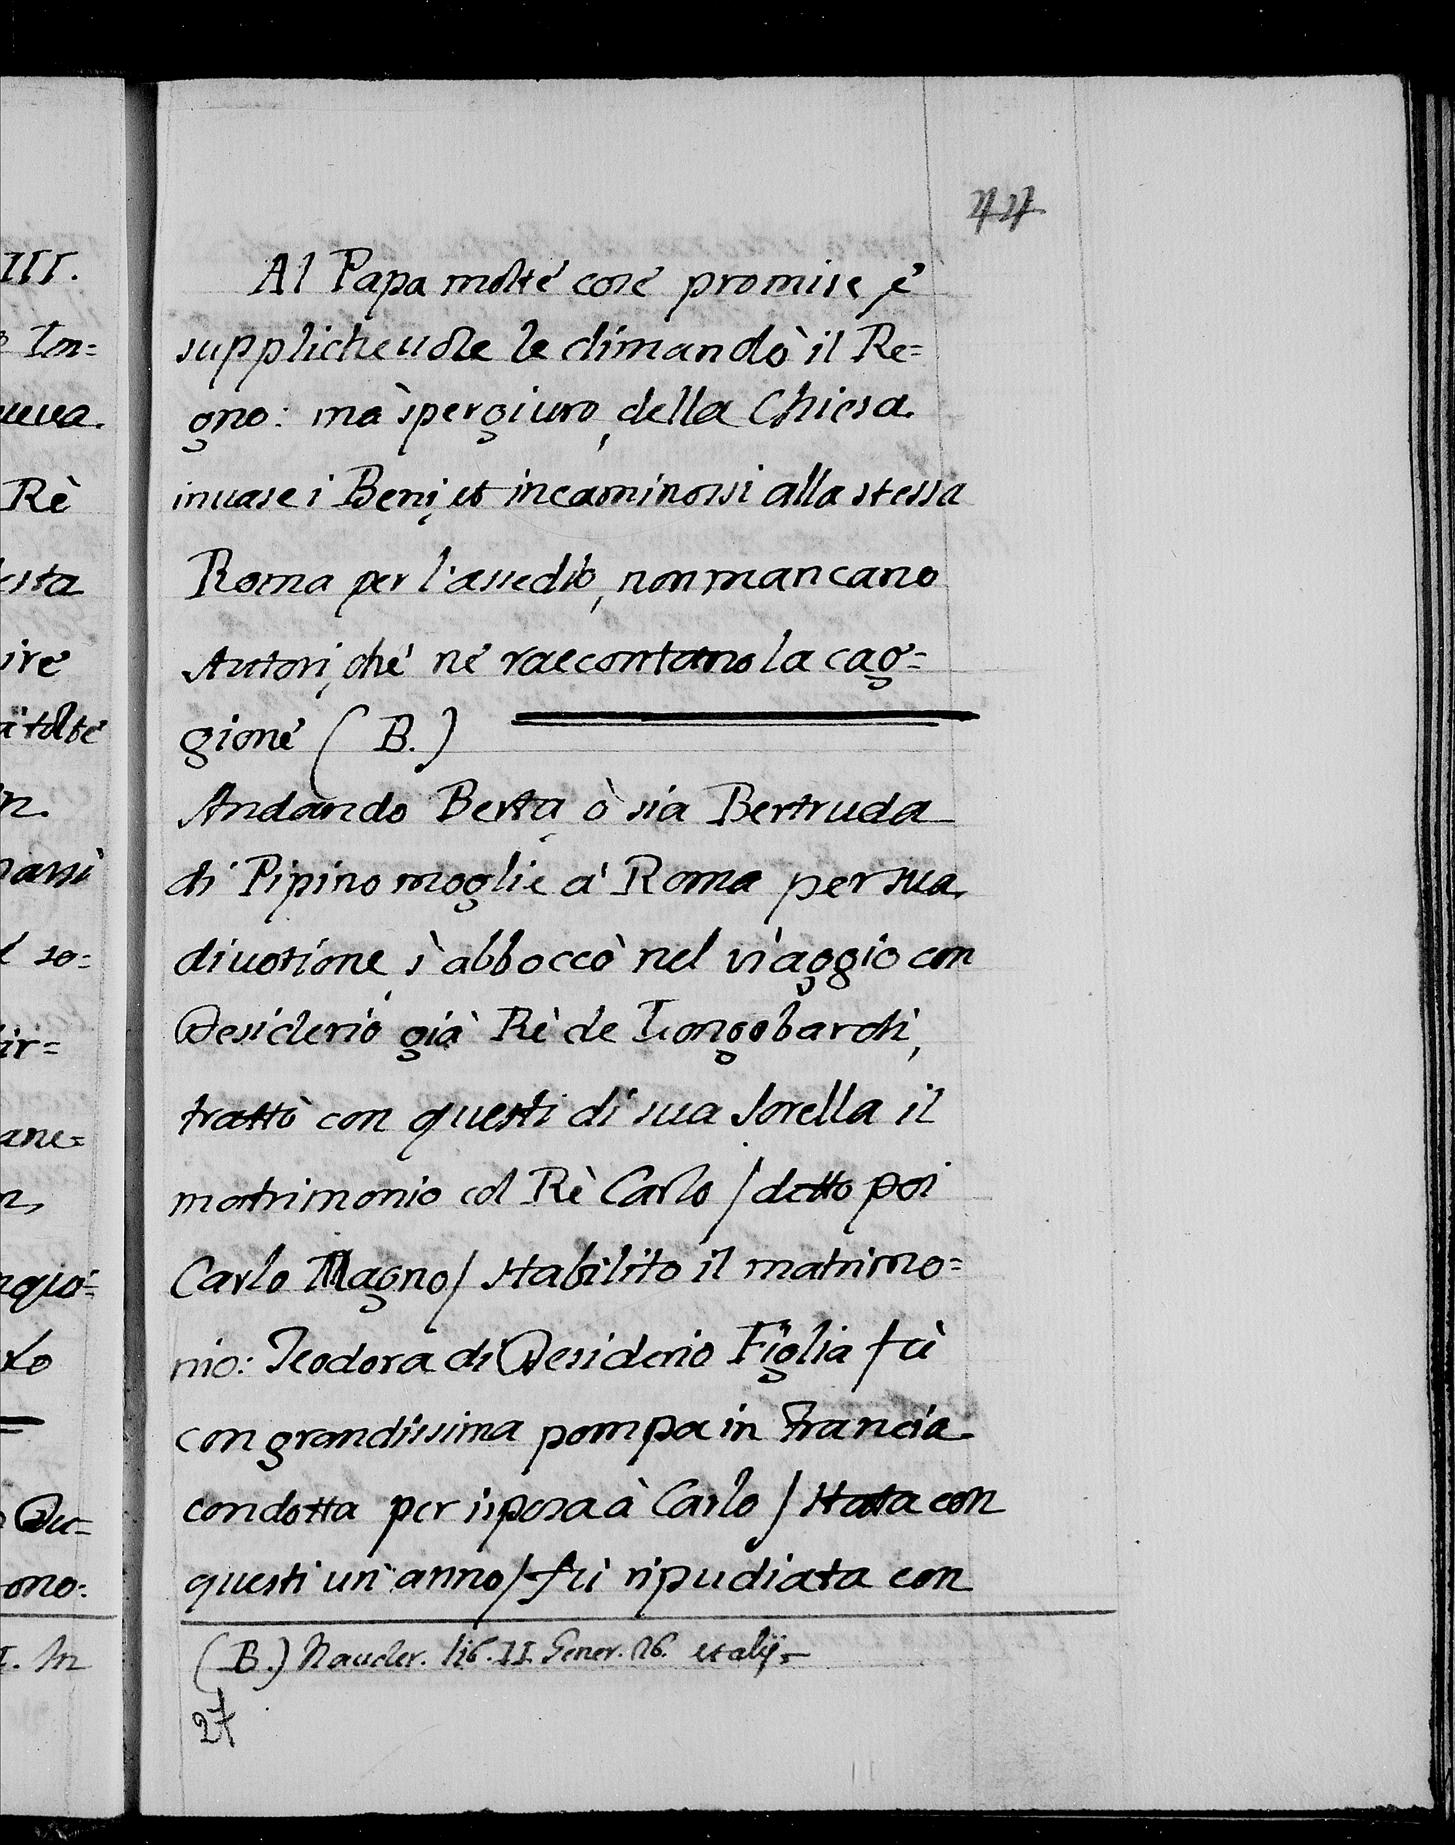 44
Al Papa molte cose promise, e
supplicheuole le dimandò il Re=
gno: mà spergiuro, della Chiesa
inuase i Beni, et incaminossi alla stessa
Roma per l'assedio, non mancano
Autori, che ne raccontano la cag=
gione (B.)
Andando Berta, ò sia Bertruda
di Pipino moglie à Roma per sua
diuotione, s'abboccò nel viaggio con
Desiderio già Rè de Longobardi,
trattò con questi di sua Sorella il
matrimonio col Rè Carlo / detto poi
Carlo Magno / stabilito il matrimo=
nio: Teodora di Desiderio Figlia fù
con grandissima pompa in Francia
condotta per isposa à Carlo / stata con
questi un'anno / fù ripudiata con
(B.) Naucler. lib. II. Gener. 26. et alij=
27
III.
Im=
Rè
esta
ire
tolte
so=
ir=
ane=
Du=
ono:
In